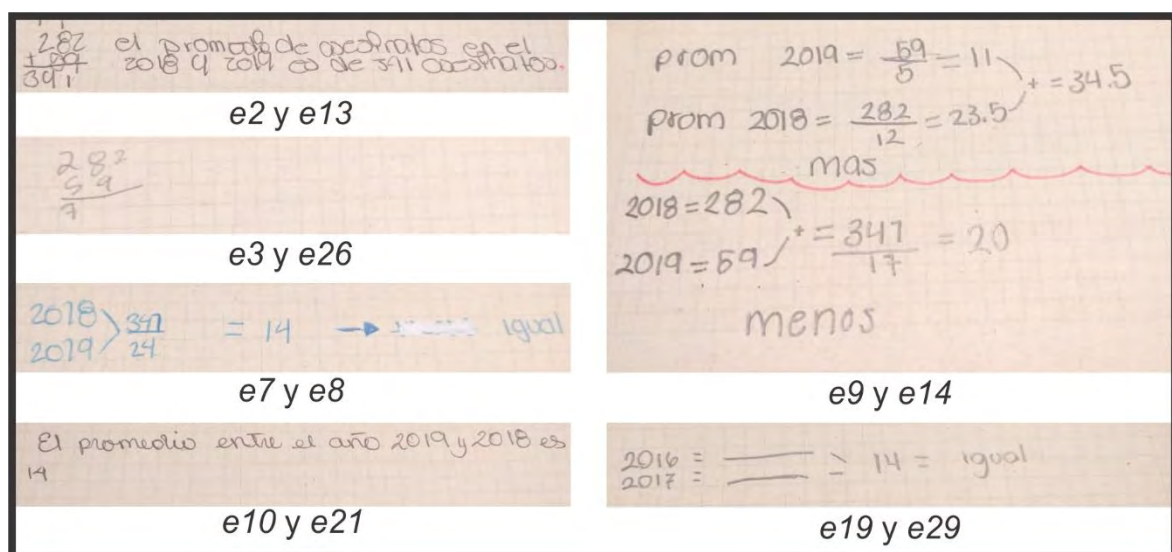 282 el promedio de asesinatos en el
391 2018 y 2019 es de 391 asesinatos.
e2 y e13
282
59
7
e3 y e26
2018
341
24
= 14 → igual
2019
e7 y e8
El promedio entre el año 2019 y 2018 es
14
e10 y e21
prom 2019 = 59/5 = 11
+ = 34.5
prom 2018 = 282/12 = 23.5
mas
2018 = 282
+ = 341/17 = 20
2019 = 59
menos
e9 y e14
2016 =
= 14 = igual
2017 =
e19 y e29